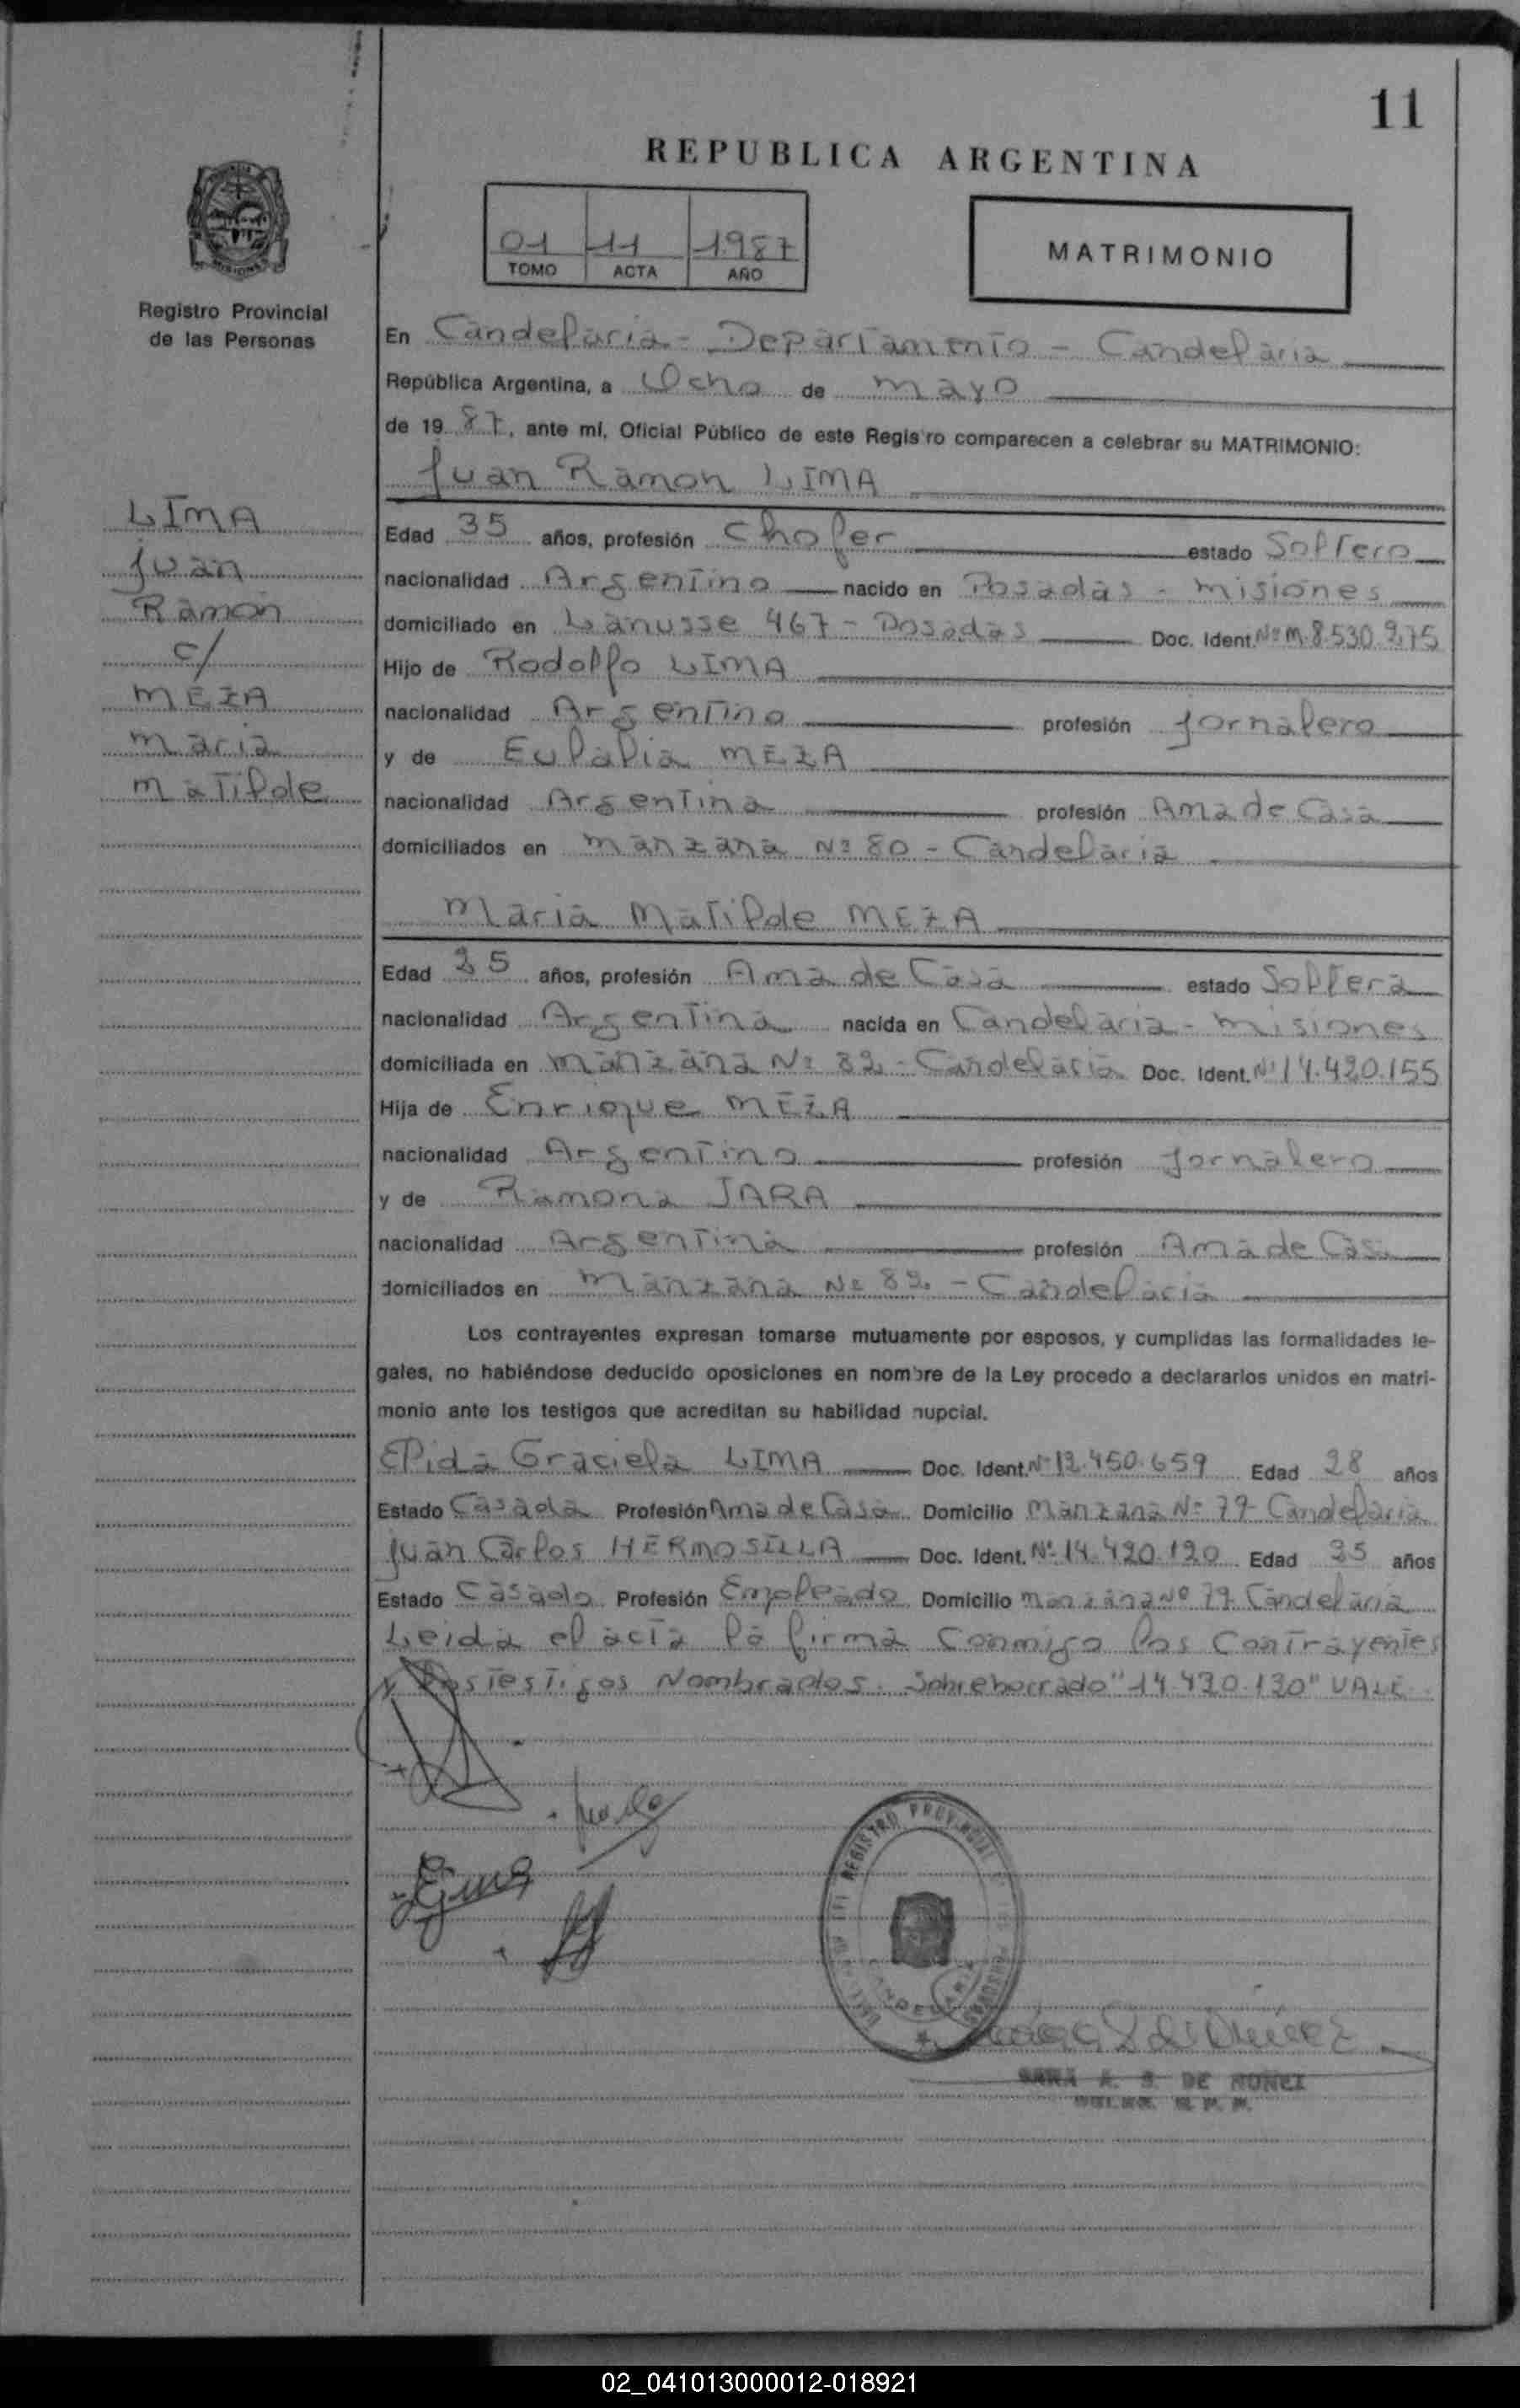 11
REPUBLICA ARGENTINA
01 11 1987
TOMO ACTA AÑO
MATRIMONIO
Registro Provincial
de las Personas
LIMA
Juan
Ramon
c/
MEZA
Maria
Matilde
En Candelaria - Departamento - Candelaria
República Argentina, a Ocho de mayo
de 19 87, ante mí, Oficial Público de este Registro comparecen a celebrar su MATRIMONIO:
Juan Ramon LIMA
Edad 35 años, profesión Chofer estado Soltero
nacionalidad Argentino nacido en Posadas - Misiones
domiciliado en Lanusse 467 - Posadas Doc. Ident. Nº M. 8.530.975
Hijo de Rodolfo LIMA
nacionalidad Argentino profesión Jornalero
y de Eulalia MEZA
nacionalidad Argentina profesión Ama de Casa
domiciliados en Manzana Nº 80 - Candelaria
Maria Matilde MEZA
Edad 25 años, profesión Ama de Casa estado Soltera
nacionalidad Argentina nacida en Candelaria - Misiones
domiciliada en Manzana Nº 82 - Candelaria Doc. Ident. Nº 14.420.155
Hija de Enrique MEZA
nacionalidad Argentino profesión Jornalero
y de Ramona JARA
nacionalidad Argentina profesión Ama de Casa
domiciliados en Manzana Nº 82 - Candelaria
Los contrayentes expresan tomarse mutuamente por esposos, y cumplidas las formalidades le-
gales, no habiéndose deducido oposiciones en nombre de la Ley procedo a declararlos unidos en matri-
monio ante los testigos que acreditan su habilidad nupcial.
Elida Graciela LIMA Doc. Ident. Nº 12.450.659 Edad 28 años
Estado Casada Profesión Ama de Casa Domicilio Manzana Nº 79 Candelaria
Juan Carlos HERMOSILLA Doc. Ident. Nº 14.420.120 Edad 25 años
Estado Casado Profesión Empleado Domicilio Manzana Nº 79 Candelaria
Leida el acta la firma conmigo los contrayentes
y los testigos Nombrados. Sobreborrado "14.420.120" VALE.
REGISTRO PROVINCIAL
SARA A. S. DE NUÑEZ
02_041013000012-018921